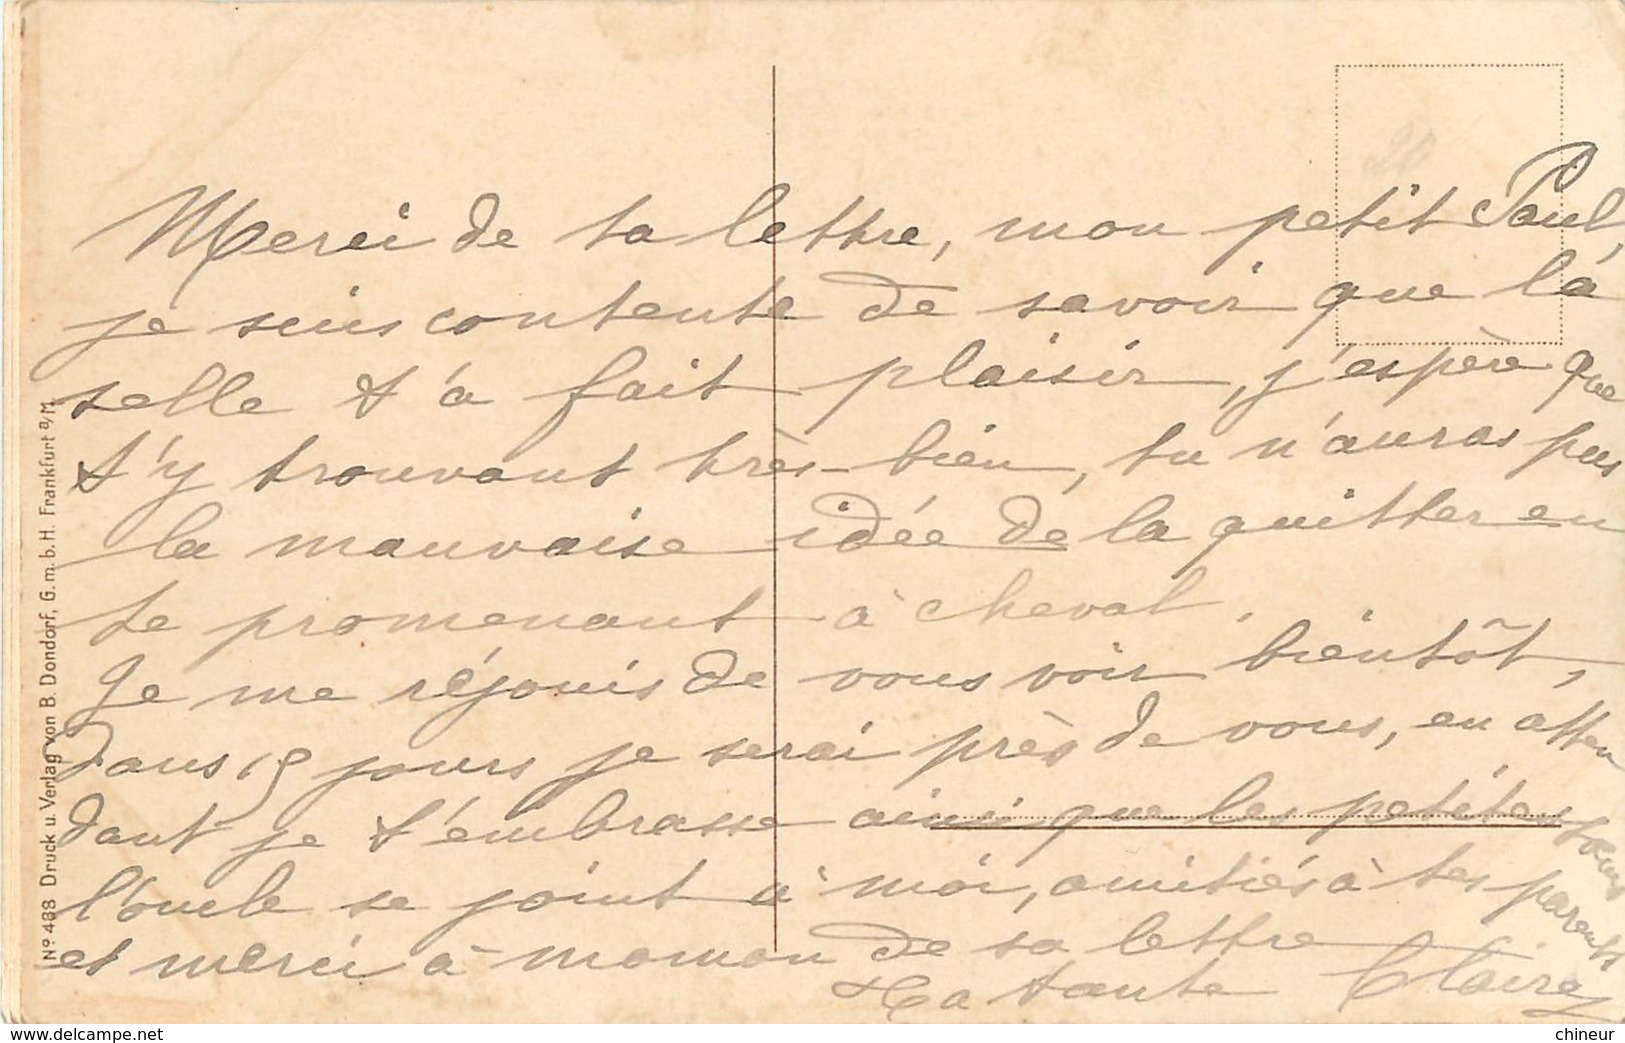 Merci de ta lettre, mon petit Paul,
je suis contente de savoir que la
selle t'a fait plaisir, j'espère que
t'y trouvant très-bien, tu n'auras pas
la mauvaise idée de la quitter en
te promenant à cheval.
Je me réjouis de vous voir bientôt,
dans 15 jours je serai près de vous, en atten
dant je t'embrasse ainsi que les petites
l'oncle se joint à moi, amitiés à tes parents
et merci à maman de sa lettre
Ta tante Claire
20
Nº 488 Druck u. Verlag von B. Dondorf, G. m. b. H. Frankfurt a/M.
delcampe.net
chineur